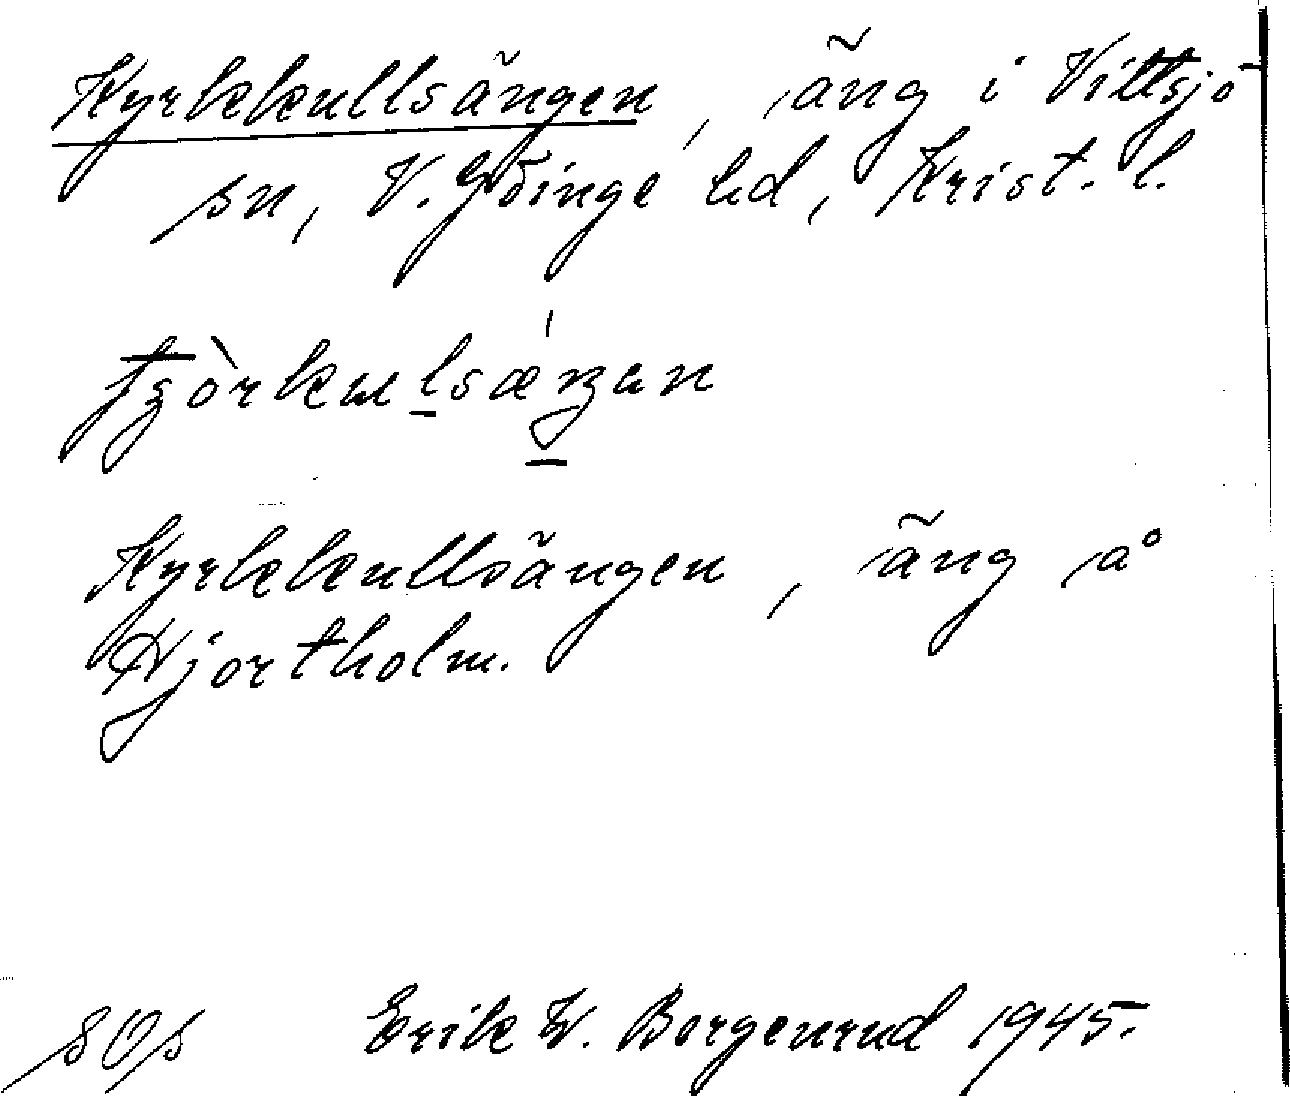 Kyrkkullsängen, äng i Vittsjö
sn, V. Göinge hd, Krist. l.
Kyrkkullsängen, äng å
Hjortholm.
sOs Erik W. Borgenrud 1945.